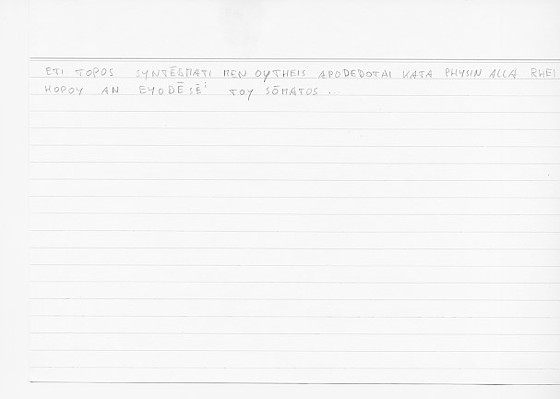 ETI TOPOS SYNTĒGMATI MEN OYTHEIS APODEDOTAI KATA PHYSIN ALLA RHEI
HOPOY AN EYODĒSĒi TOY SŌMATOS . .